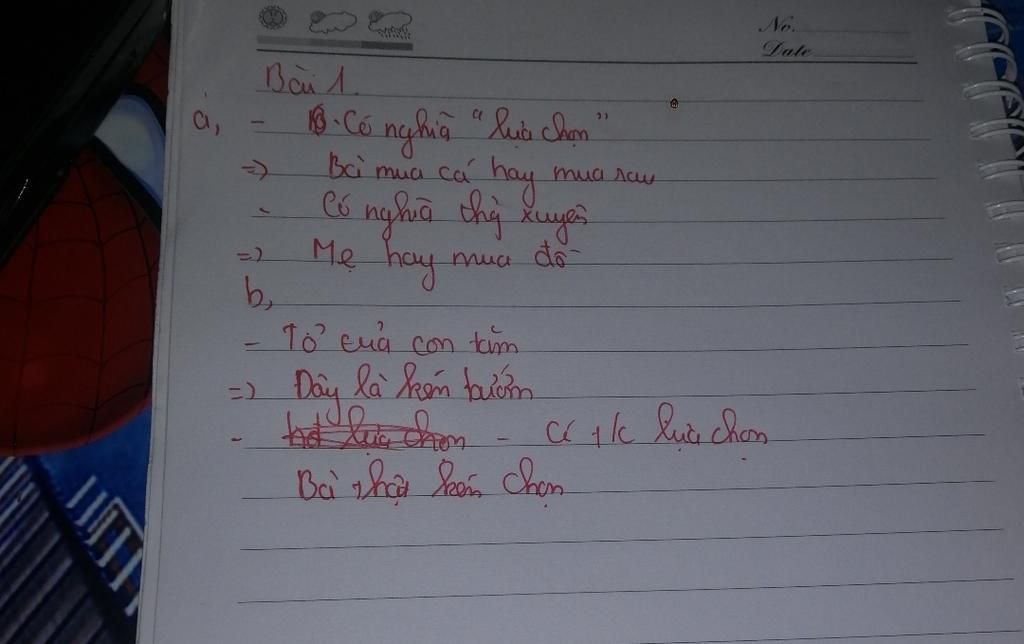 No.
Date
Bài 1.
a, - Có nghĩa "lựa chọn"
=> Bà mua cá hay mua rau
- Có nghĩa thg xuyên
=> Mẹ hay mua đồ
b,
- Tổ của con tằm
=> Đây là kén bướm
- - Có t/c lựa chọn
Bà thật kén chọn